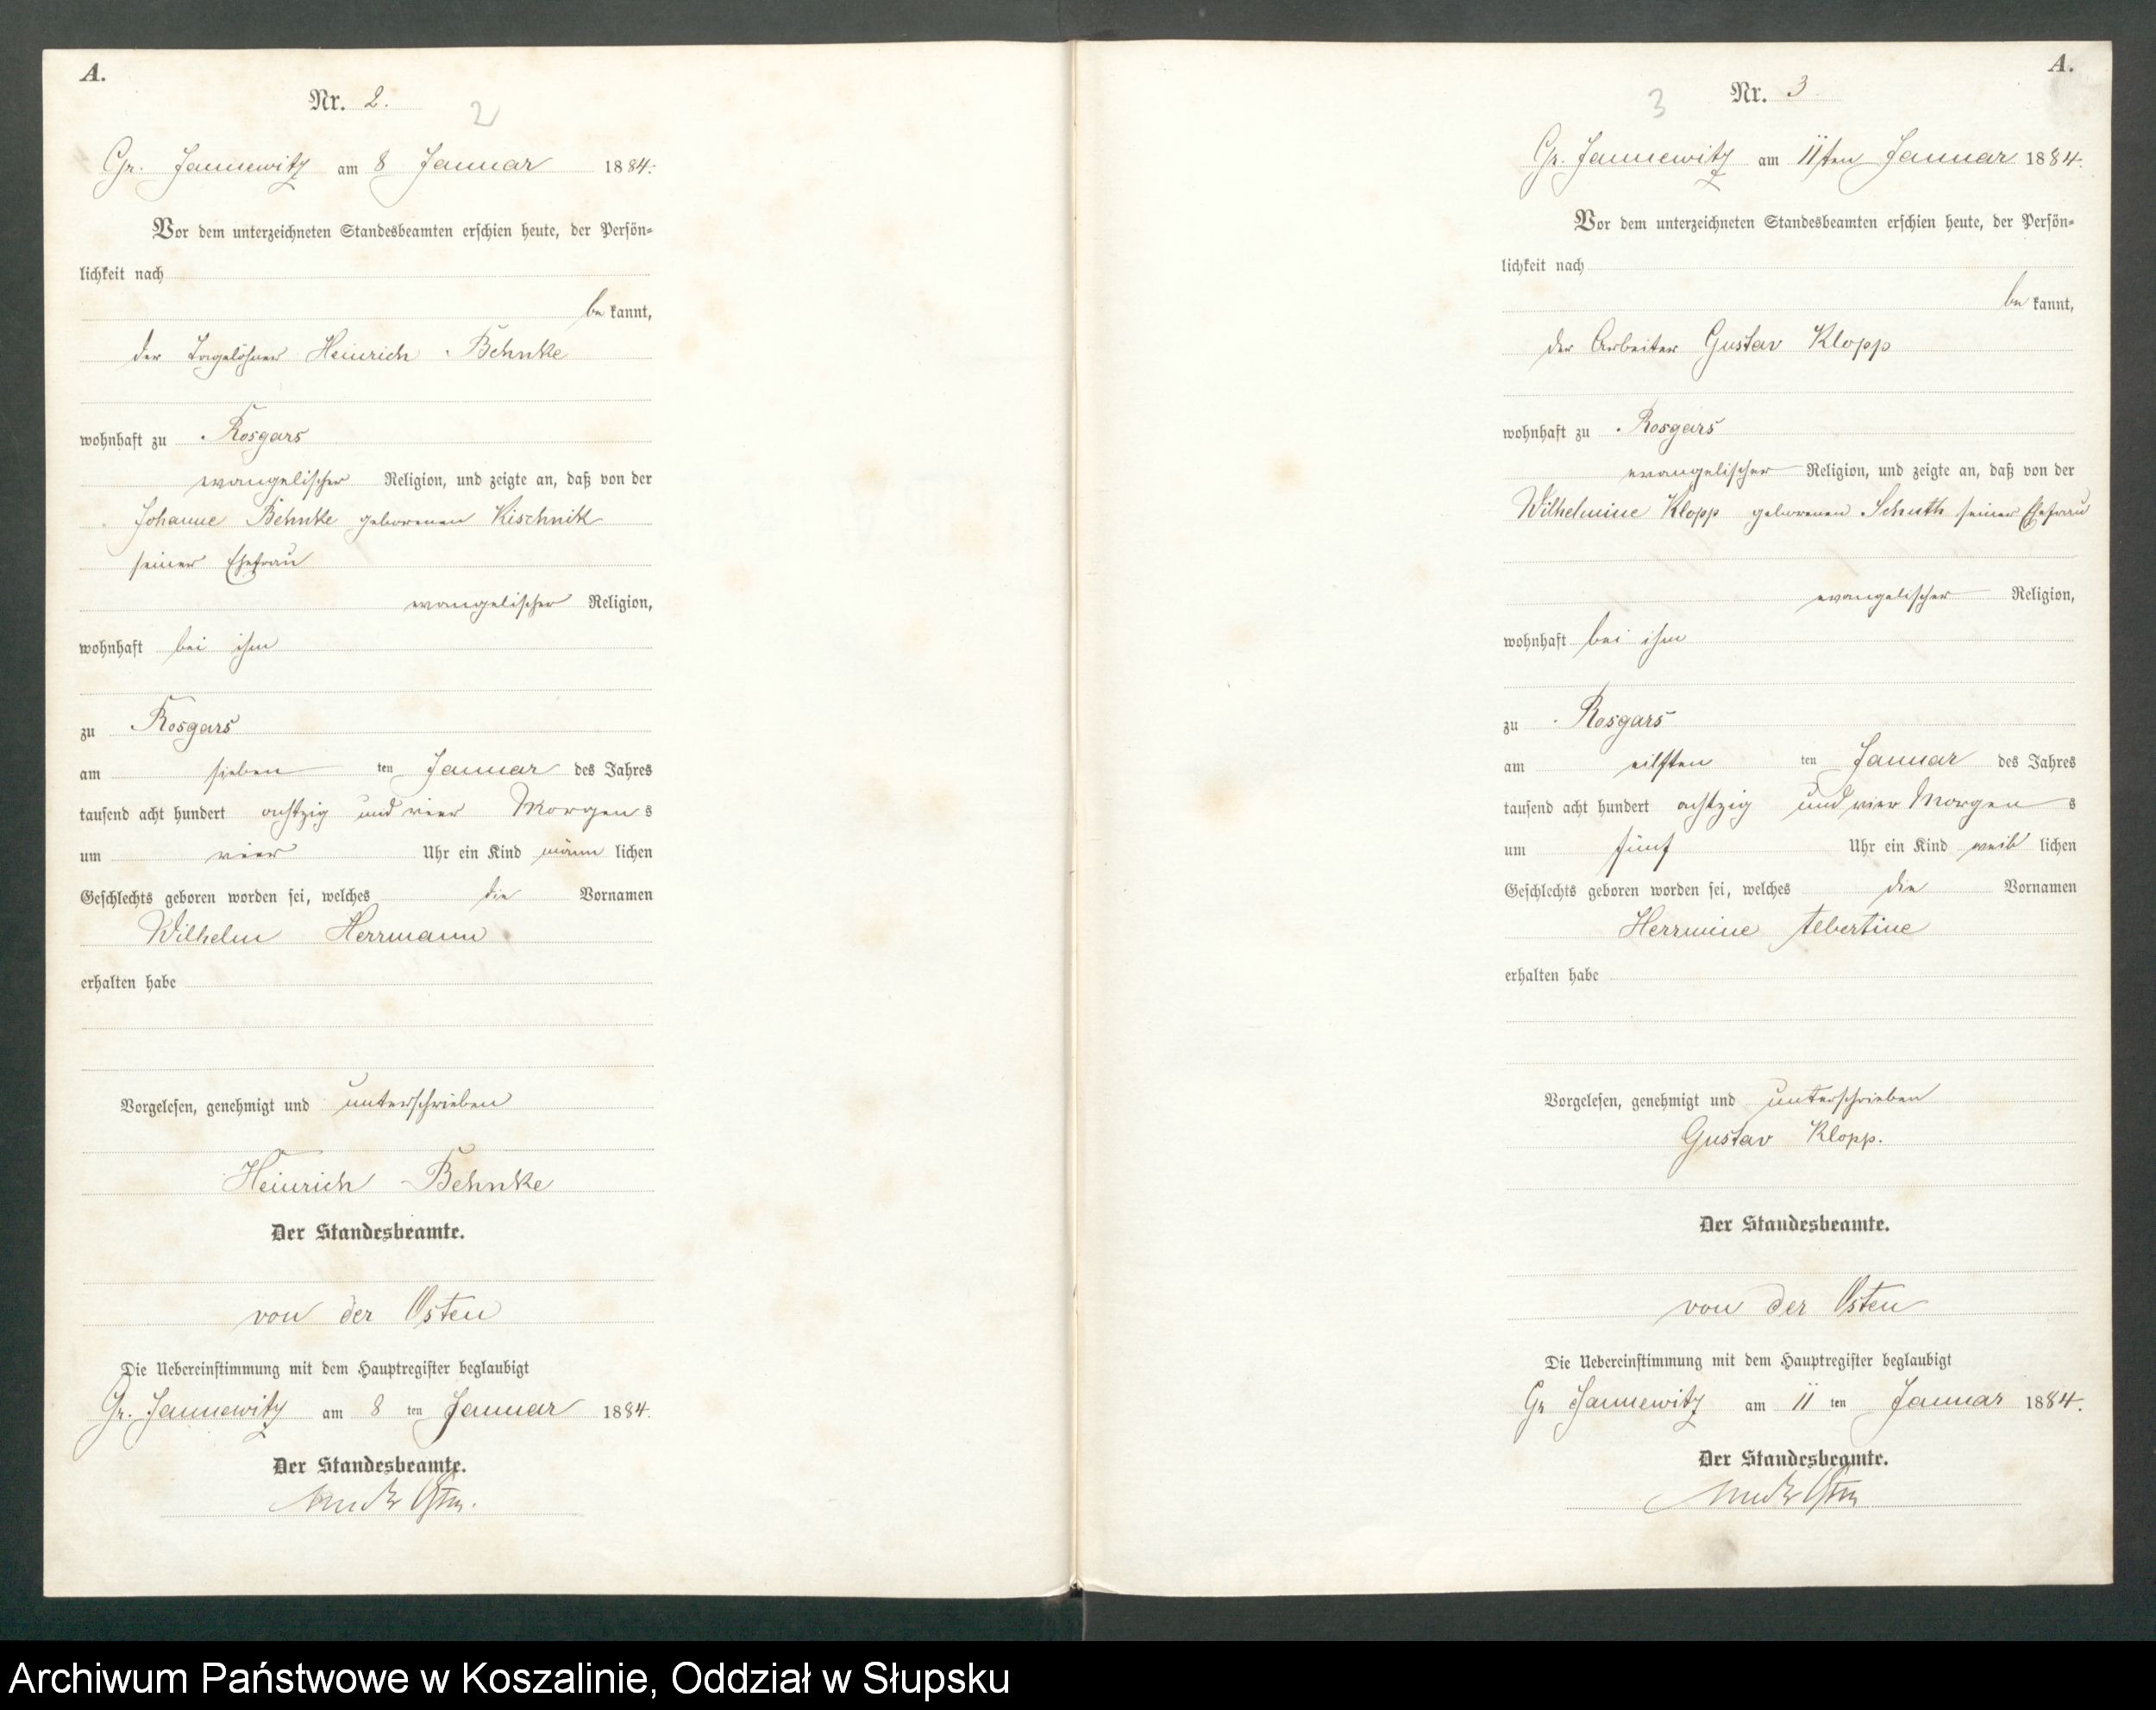 A.
Nr. 2.
2
Gr. Jannewitz am 8 Januar 1884.
Vor dem unterzeichneten Standesbeamten erschien heute, der Persön-
lichkeit nach
be kannt,
der Tagelöhner Heinrich Behnke
wohnhaft zu Rosgars
evangelischer Religion, und zeigte an, daß von der
Johanne Behnke geborenen Kischnik
seiner Ehefrau
evangelischer Religion,
wohnhaft bei ihm
zu Rosgars
am sieben ten Januar des Jahres
tausend acht hundert achtzig und vier Morgen s
um vier Uhr ein Kind männ lichen
Geschlechts geboren worden sei, welches die Vornamen
Wilhelm Herrmann
erhalten habe
Vorgelesen, genehmigt und unterschrieben
Heinrich Behnke
Der Standesbeamte.
von der Osten
Die Uebereinstimmung mit dem Hauptregister beglaubigt
Gr. Jannewitz am 8 ten Januar 1884.
Der Standesbeamte.
Osten.
A.
3
Nr. 3
Gr. Jannewitz am 11ten Januar 1884.
Vor dem unterzeichneten Standesbeamten erschien heute, der Persön-
lichkeit nach
be kannt,
der Arbeiter Gustav Klopp
wohnhaft zu Rosgars
evangelischer Religion, und zeigte an, daß von der
Wilhelmine Klopp geborenen Schuth seiner Ehefrau
evangelischer Religion,
wohnhaft bei ihm
zu Rosgars
am eilften ten Januar des Jahres
tausend acht hundert achtzig und vier Morgen s
um fünf Uhr ein Kind weib lichen
Geschlechts geboren worden sei, welches die Vornamen
Herrmine Albertine
erhalten habe
Vorgelesen, genehmigt und unterschrieben
Gustav Klopp.
Der Standesbeamte.
von der Osten
Die Uebereinstimmung mit dem Hauptregister beglaubigt
Gr Jannewitz am 11 ten Januar 1884.
Der Standesbeamte.
Osten
Archiwum Państwowe w Koszalinie, Oddział w Słupsku